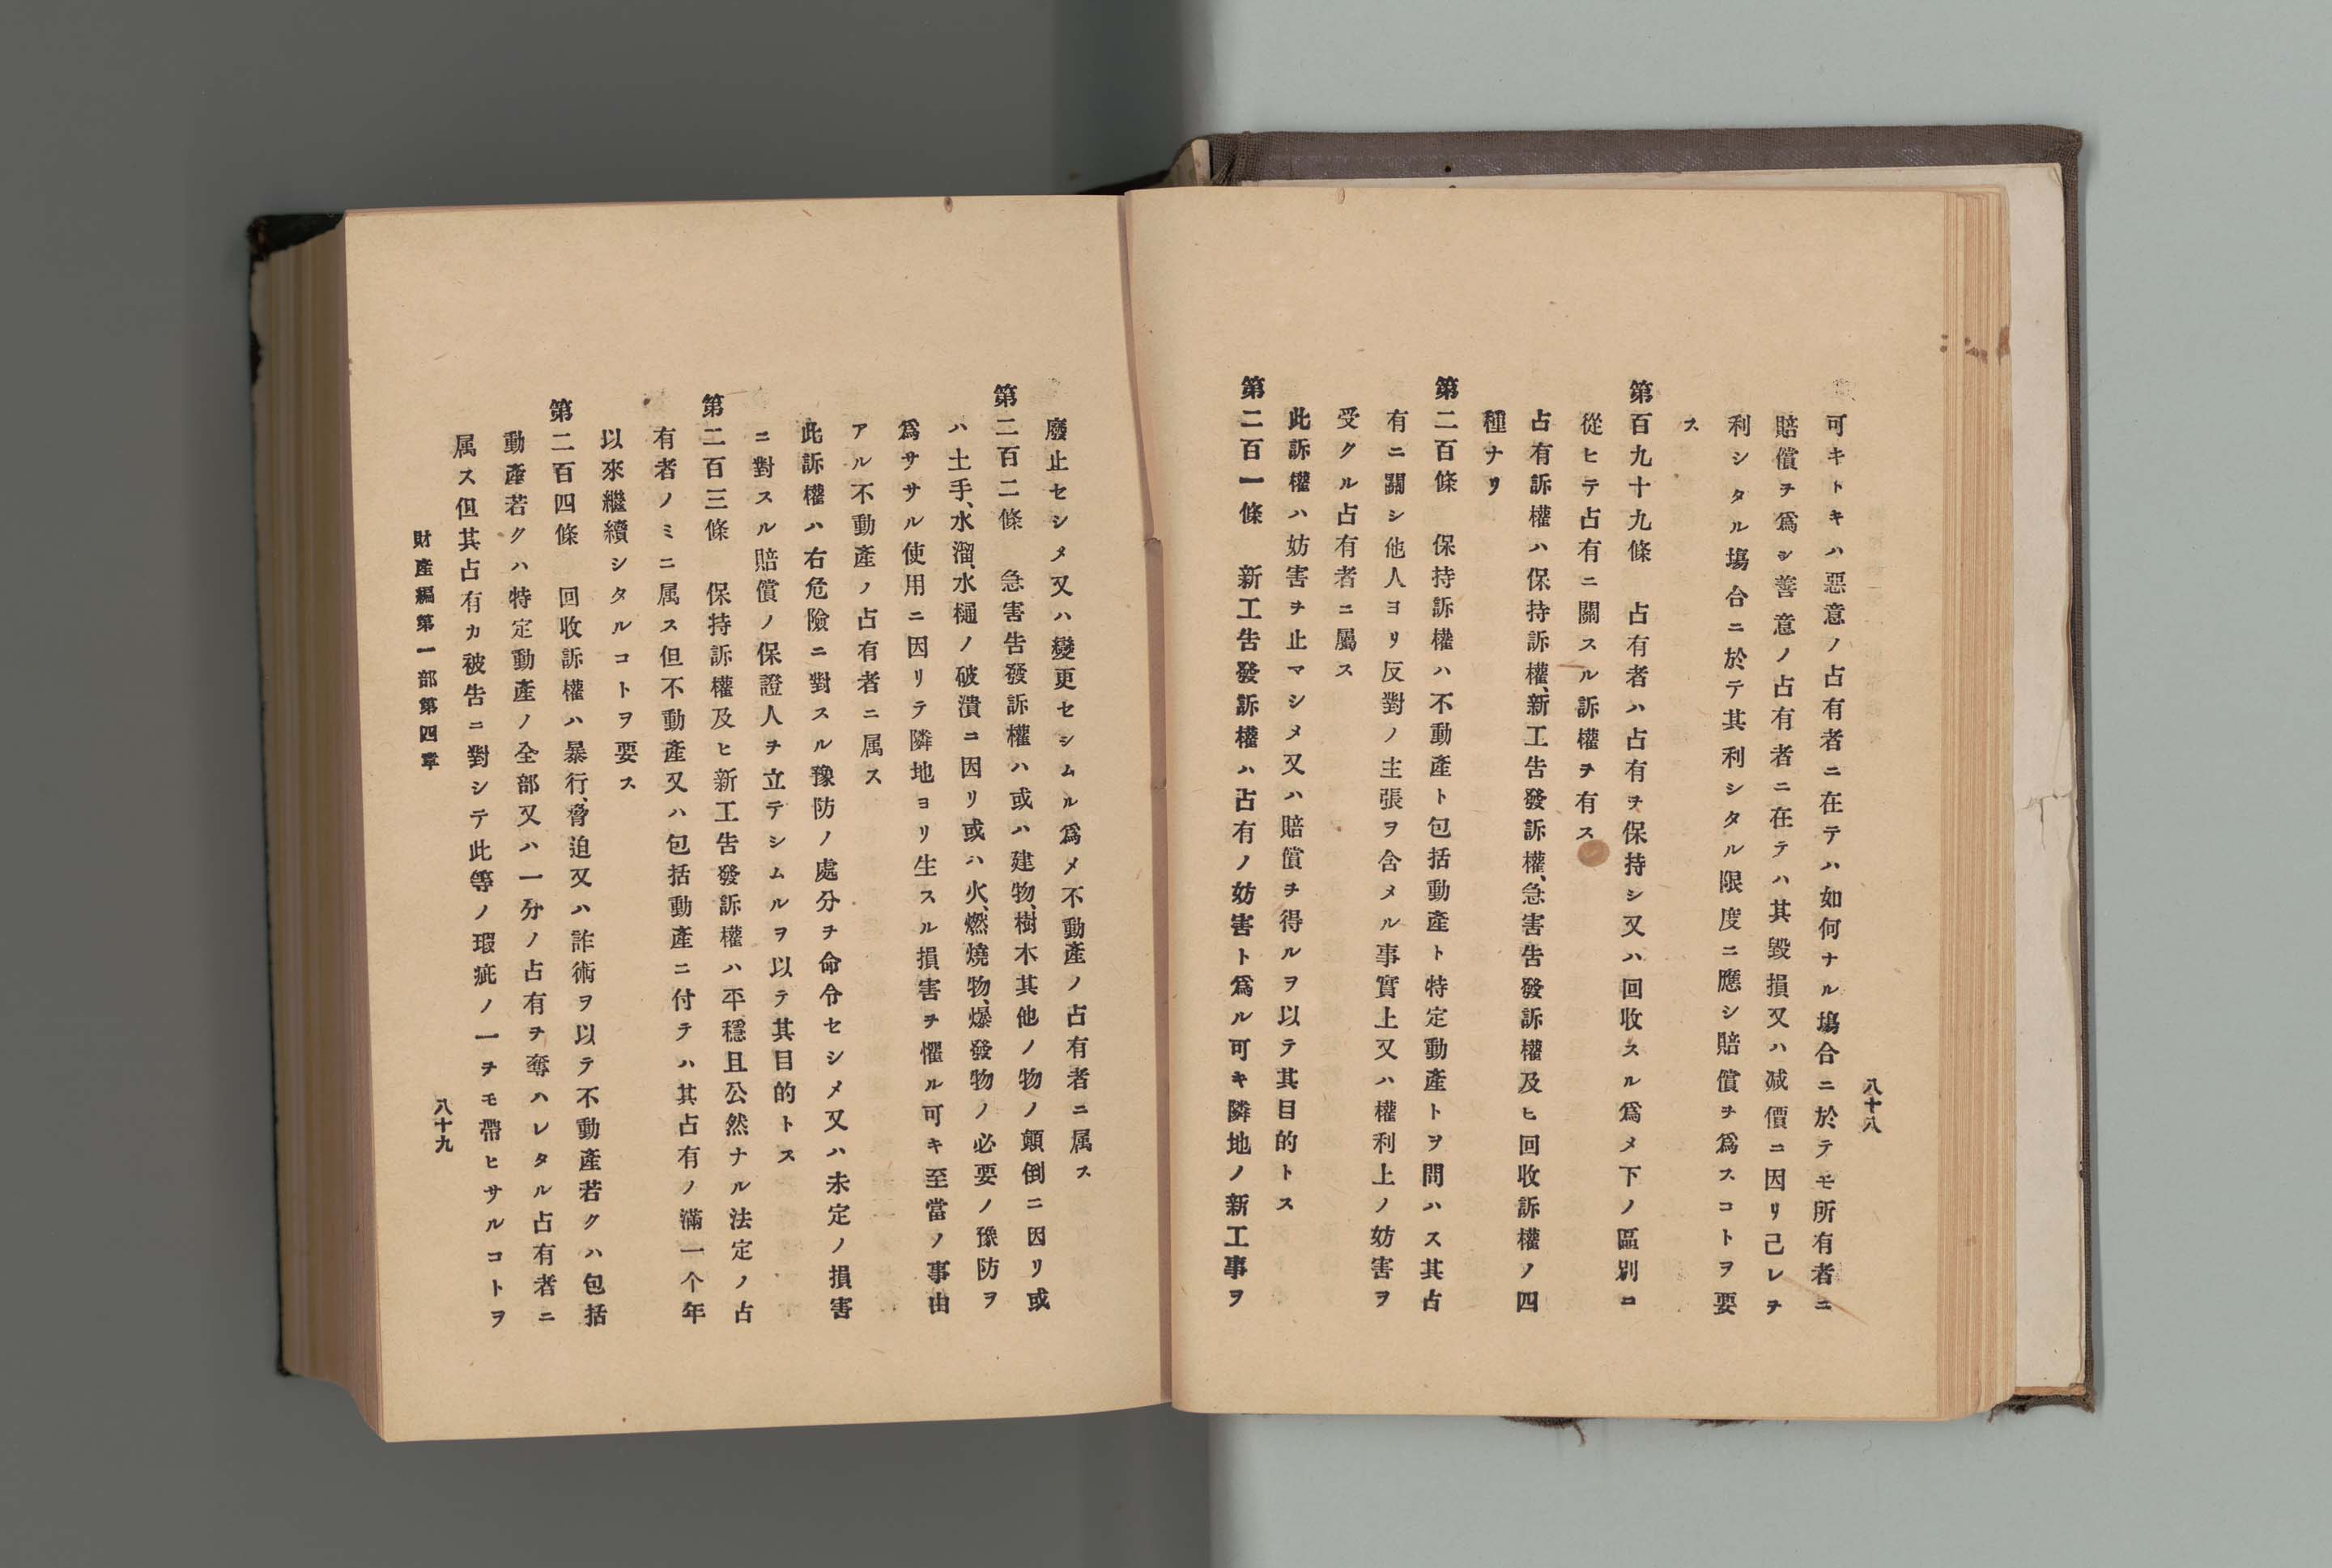 八十八
可キトキハ惡意ノ占有者ニ在テハ如何ナル塲合ニ於テモ所有者ニ
賠償ヲ爲シ善意ノ占有者ニ在テハ其毀損又ハ減價ニ因リ己レヲ
利シタル塲合ニ於テ其利シタル限度ニ應シ賠償ヲ爲スコトヲ要
ス
第百九十九條　占有者ハ占有ヲ保持シ又ハ回收スル爲メ下ノ區別ニ
從ヒテ占有ニ關スル訴權ヲ有ス
占有訴權ハ保持訴權、新工告發訴權、急害告發訴權及ヒ回收訴權ノ四
種ナリ
第二百條　保持訴權ハ不動產ト包括動產ト特定動產トヲ問ハス其占
有ニ關シ他人ヨリ反對ノ主張ヲ含メル事實上又ハ權利上ノ妨害ヲ
受クル占有者ニ屬ス
此訴權ハ妨害ヲ止マシメ又ハ賠償ヲ得ルヲ以テ其目的トス
第二百一條　新工告發訴權ハ占有ノ妨害ト爲ル可キ隣地ノ新工事ヲ
廢止セシメ又ハ變更セシムル爲メ不動產ノ占有者ニ属ス
第二百二條　急害告發訴權ハ或ハ建物、樹木其他ノ物ノ顛倒ニ因リ或
ハ土手、水溜、水樋ノ破潰ニ因リ或ハ火、燃燒物、爆發物ノ必要ノ豫防ヲ
爲サヽル使用ニ因リテ隣地ヨリ生スル損害ヲ懼ル可キ至當ノ事由
アル不動產ノ占有者ニ属ス
此訴權ハ右危險ニ對スル豫防ノ處分ヲ命令セシメ又ハ未定ノ損害
ニ對スル賠償ノ保證人ヲ立テシムルヲ以テ其目的トス
第二百三條　保持訴權及ヒ新工告發訴權ハ平穩且公然ナル法定ノ占
有者ノミニ属ス但不動產又ハ包括動產ニ付テハ其占有ノ滿一个年
以來繼續シタルコトヲ要ス
第二百四條　回收訴權ハ暴行、脅迫又ハ詐術ヲ以テ不動產若クハ包括
動產若クハ特定動產ノ全部又ハ一分ノ占有ヲ奪ハレタル占有者ニ
属ス但其占有カ被告ニ對シテ此等ノ瑕疵ノ一ヲモ帶ヒサルコトヲ
財產編第一部第四章
八十九